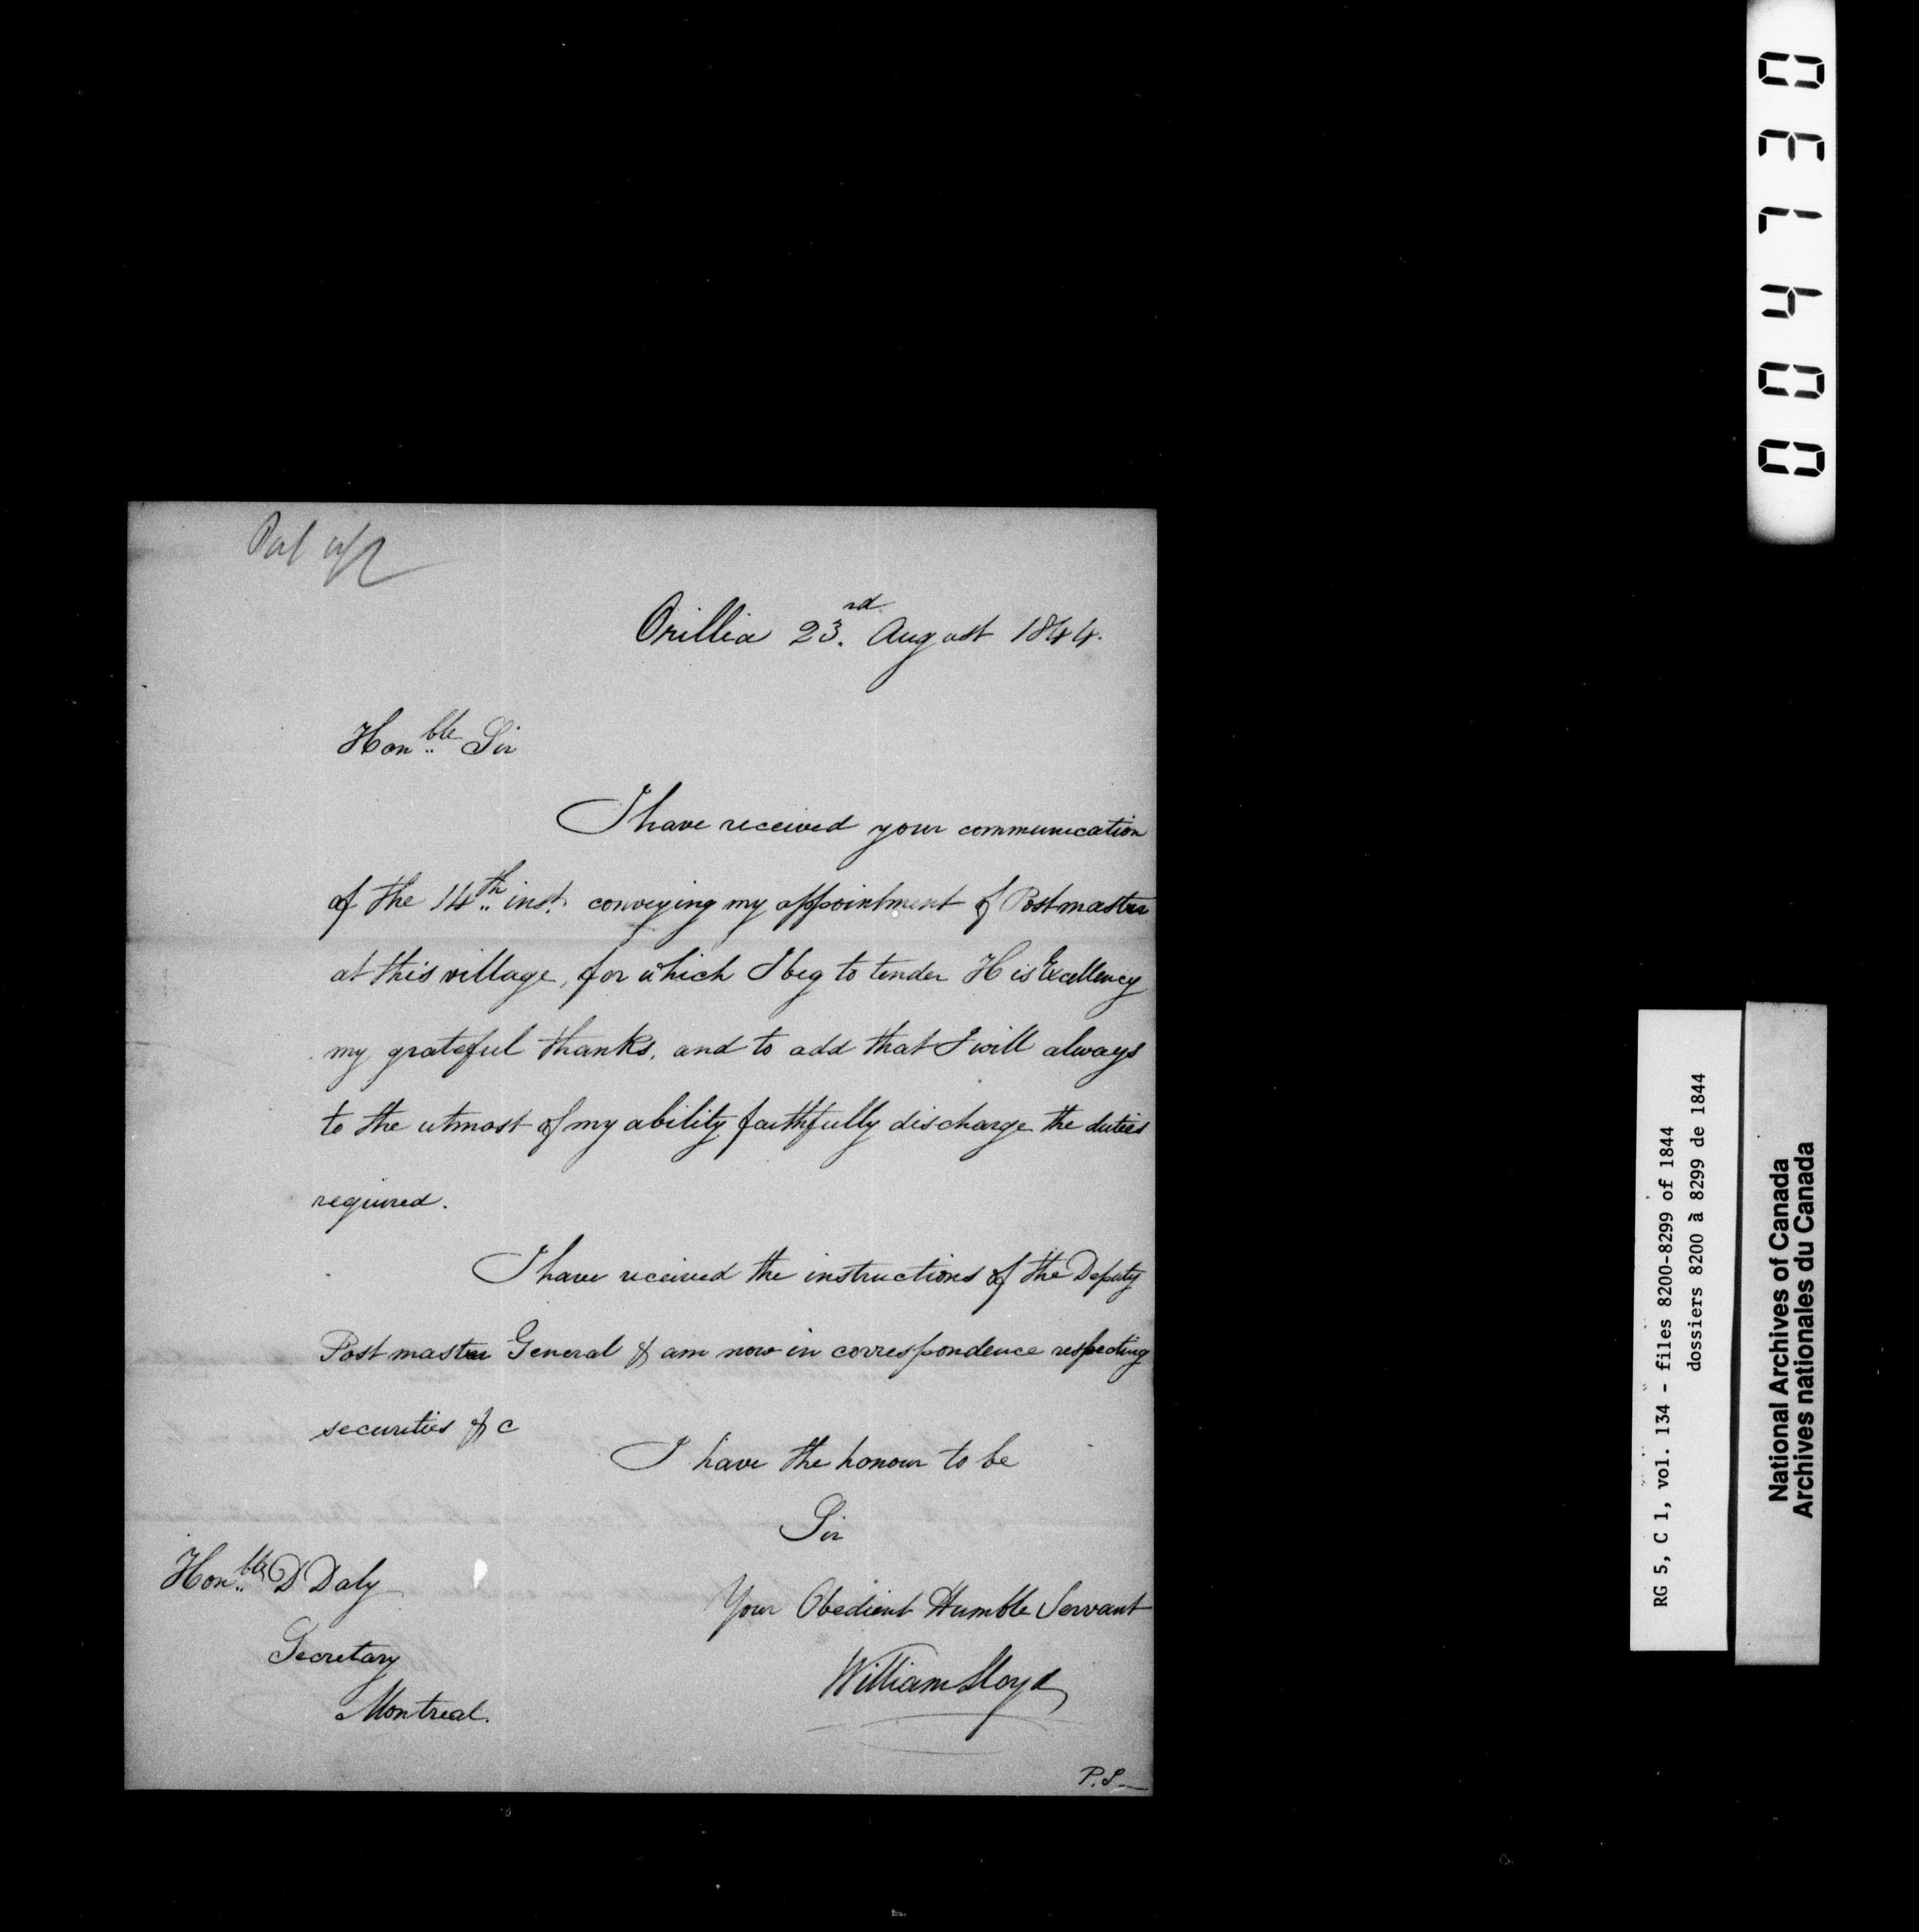 Orillia 23rd. August 1844.
Honble Sir
I have received your communication
of the 14th inst. conveying my appointment of Postmaster
at this village, for which I beg to tender His Excellency
my grateful thanks, and to add that I will always
to the utmost of my ability faithfully discharge the duties
required.
I have received the instructions of the Deputy
Postmaster General & am now in correspondence respecting
securities &c
I have the honour to be
Sir
Your Obedient Humble Servant
William Lloyd
Honble D Daly
Secretary
Montreal.
P.S.
004730
RG 5, C 1, vol. 134 - files 8200-8299 of 1844
dossiers 8200 à 8299 de 1844
National Archives of Canada
Archives nationales du Canada